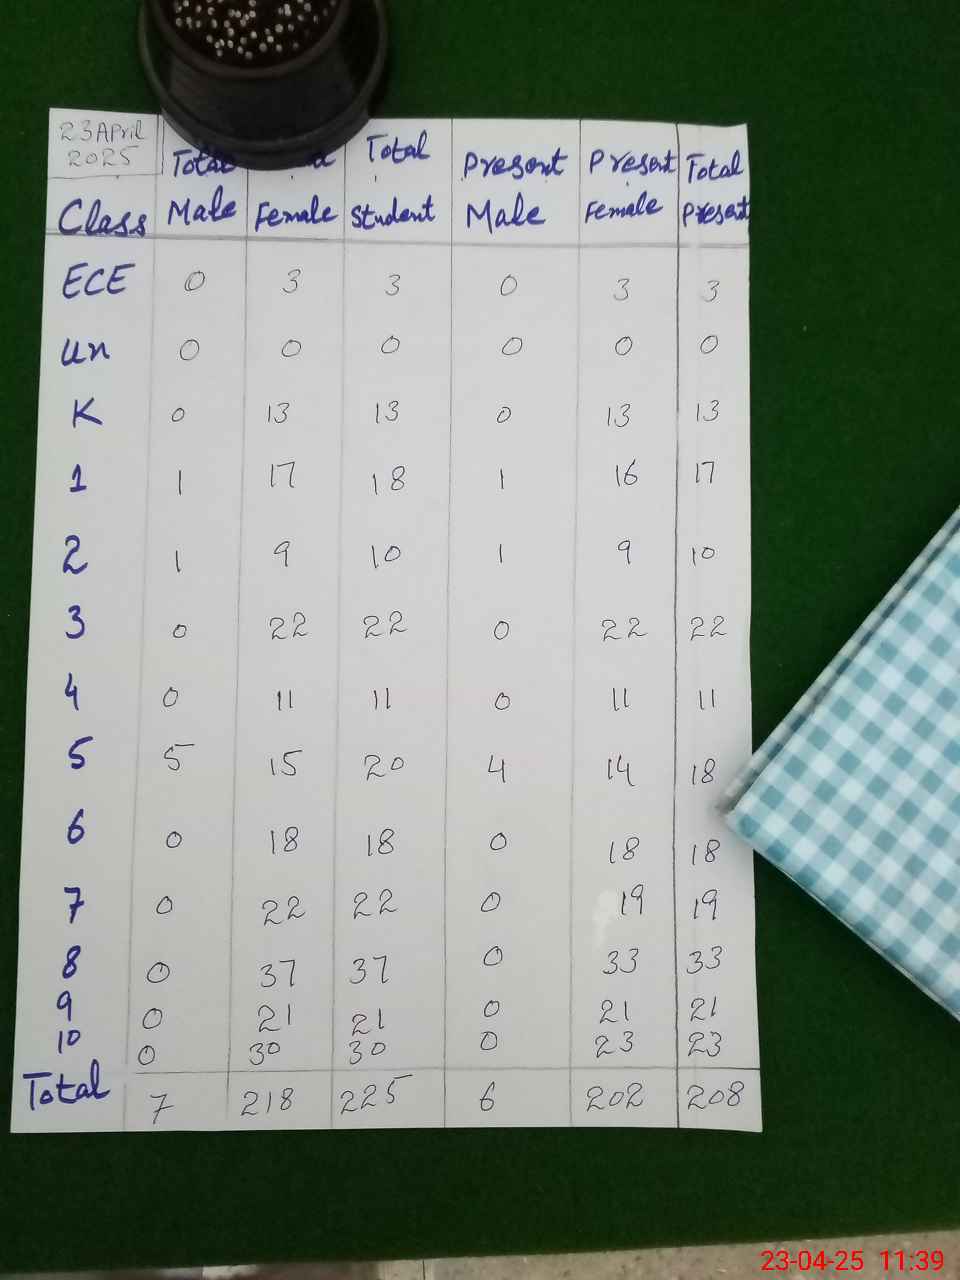 23 April 2025 Total Total Present Present Total
Class Male Female Student Male Female Present
ECE 0 3 3 0 3 3
un 0 0 0 0 0 0
K 0 13 13 0 13 13
1 1 17 18 1 16 17
2 1 9 10 1 9 10
3 0 22 22 0 22 22
4 0 11 11 0 11 11
5 5 15 20 4 14 18
6 0 18 18 0 18 18
7 0 22 22 0 19 19
8 0 37 37 0 33 33
9 0 21 21 0 21 21
10 0 30 30 0 23 23
Total 7 218 225 6 202 208
23-04-25 11:39